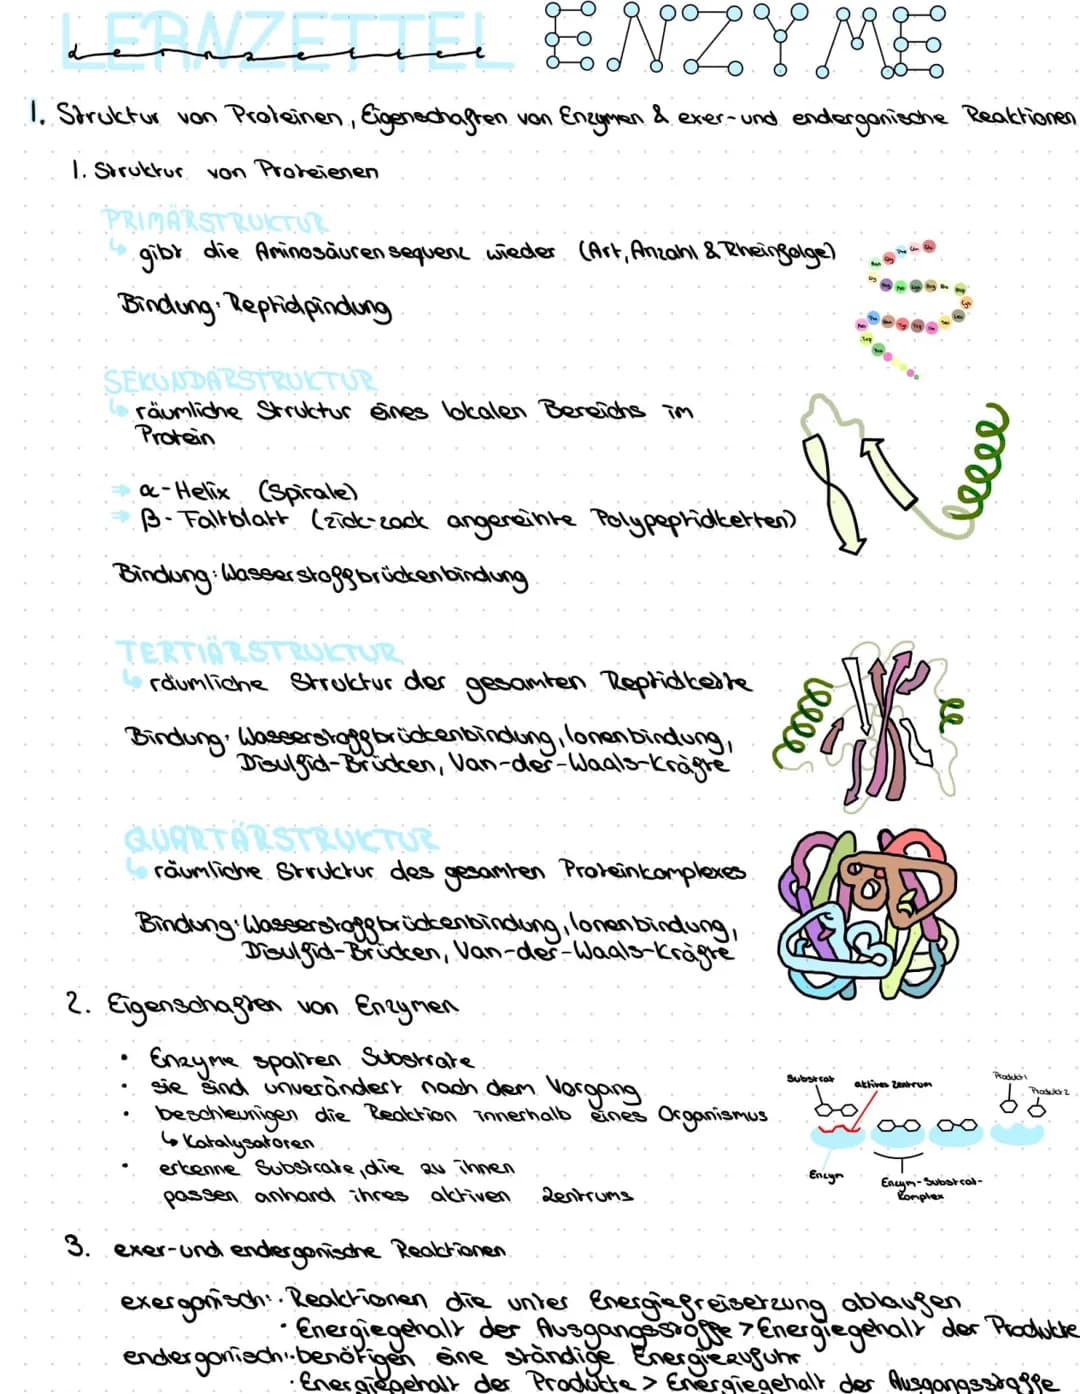 LERNZETTEL
Lernzettel
ENZYME
1. Struktur von Proteinen, Eigenschaften von Enzymen & exer- und endergonische Reaktionen
1. Struktur von Proteienen
PRIMÄRSTRUKTUR
↳ gibt die Aminosäurensequenz wieder (Art, Anzahl & Rheinfolge)
Bindung: Peptidpindung
SEKUNDÄRSTRUKTUR
↳ räumliche Struktur eines lokalen Bereichs im
Protein
⇒ α-Helix (Spirale)
⇒ β-Faltblatt (zick-zack angereihte Polypeptidketten)
Bindung: Wasserstoffbrückenbindung
TERTIÄRSTRUKTUR
↳ räumliche Struktur der gesamten Peptidkette
Bindung: Wasserstoffbrückenbindung, Ionenbindung,
Disulfid-Brücken, Van-der-Waals-Kräfte
QUARTÄRSTRUKTUR
↳ räumliche Struktur des gesamten Proteinkomplexes
Bindung: Wasserstoffbrückenbindung, Ionenbindung,
Disulfid-Brücken, Van-der-Waals-Kräfte
2. Eigenschaften von Enzymen
• Enzyme spalten Substrate
• sie sind unverändert nach dem Vorgang
• beschleunigen die Reaktion innerhalb eines Organismus
↳ Katalysatoren
• erkenne Substrate, die zu ihnen
passen anhand ihres aktiven Zentrums
Substrat
aktives Zentrum
Produkt 1
Produkt 2
Enzym
Enzym-Substrat-
Komplex
3. exer- und endergonische Reaktionen
exergonisch: · Reaktionen die unter Energiefreisetzung ablaufen
· Energiegehalt der Ausgangsstoffe > Energiegehalt der Produkte
endergonisch: · benötigen eine ständige Energiezufuhr
· Energiegehalt der Produkte > Energiegehalt der Ausgangsstoffe